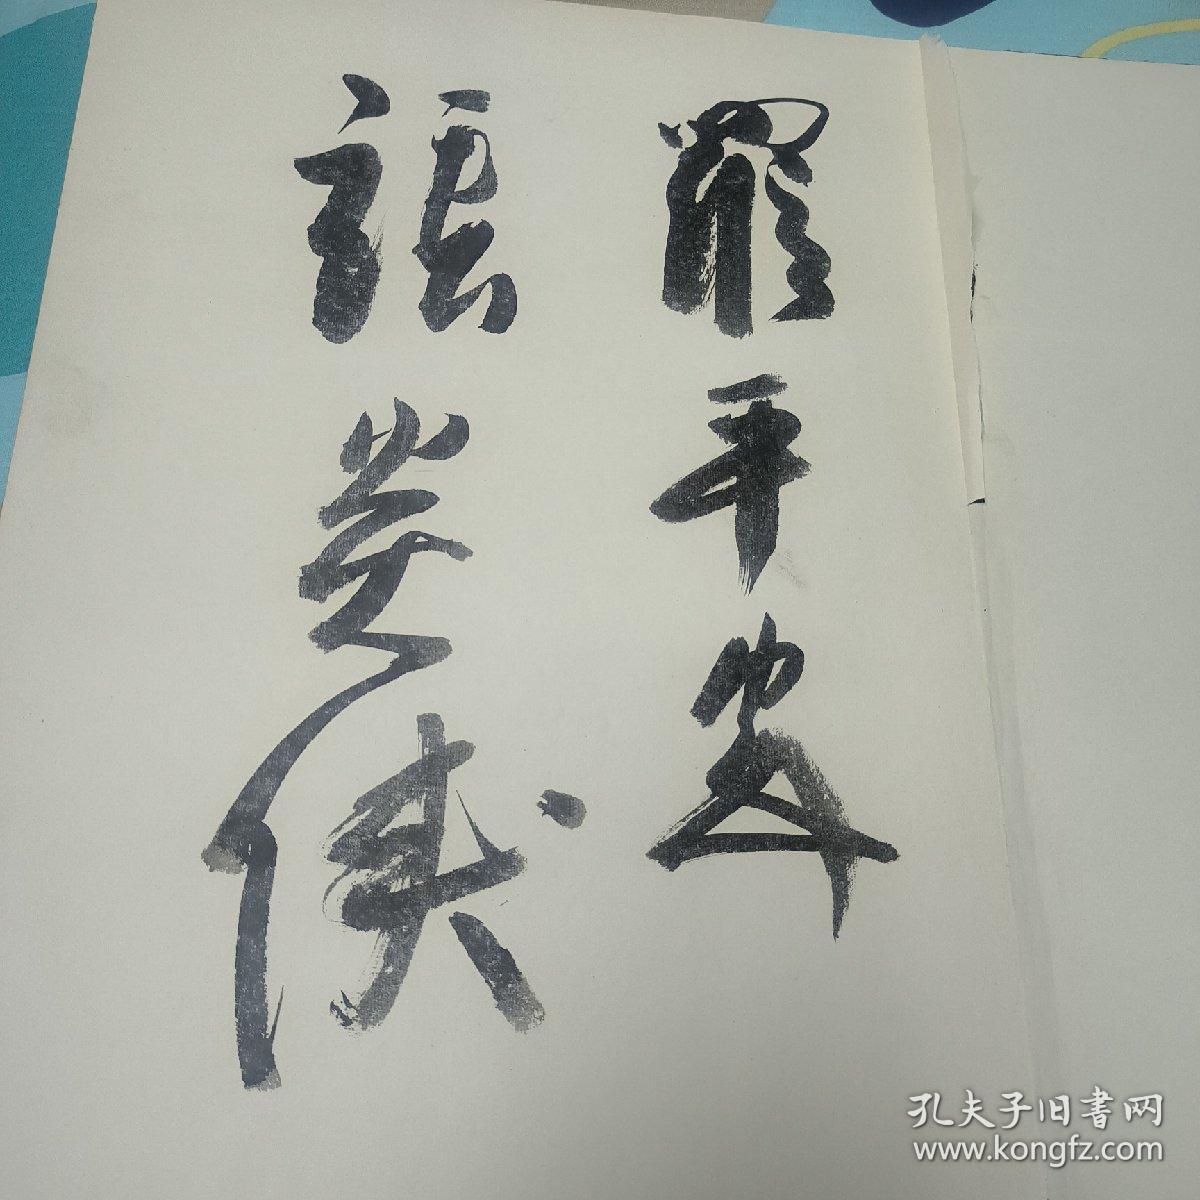 羅平安
張
孔夫子旧書网
www.kongfz.com